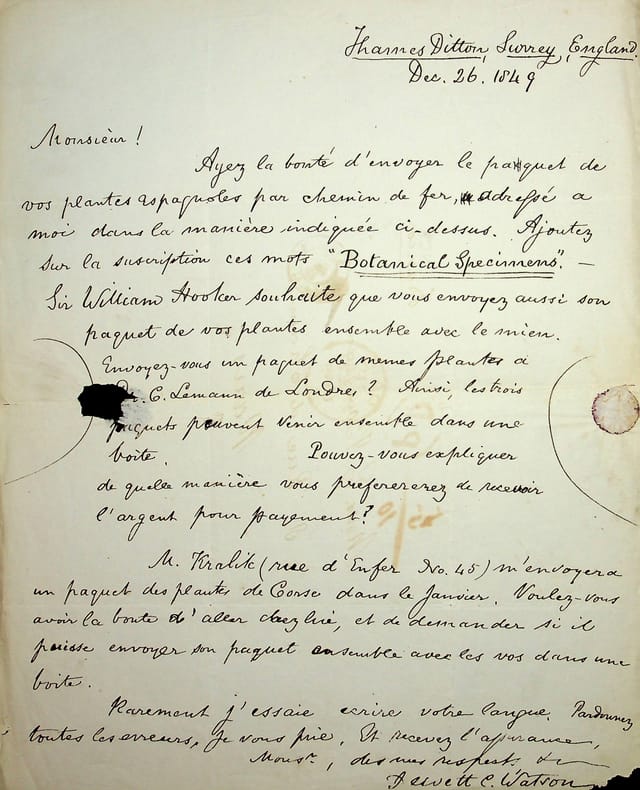 Thames Ditton, Surrey, England.
Dec. 26. 1849
Monsieur!
Ayez la bonté d'envoyer le paquet de
vos plantes espagnoles par chemin de fer, adressé a
moi dans la manière indiquée ci-dessus. Ajoutez
sur la suscription ces mots "Botanical Specimens". —
Sir William Hooker souhaite que vous envoyez aussi son
paquet de vos plantes ensemble avec le mien.
Envoyez-vous un paquet de memes plantes a
Dr. C. Lemann de Londres? Ainsi, les trois
paquets peuvent venir ensemble dans une
boite. Pouvez-vous expliquer
de quelle manière vous prefererez de recevoir
l'argent pour payement?
M. Kralik (rue d'Enfer No. 45) m'envoyera
un paquet des plantes de Corse dans le Janvier. Voulez-vous
avoir la bonte d'aller chez lui, et de demander si il
puisse envoyer son paquet ensemble avec les vos dans une
boite.
Rarement j'essaie ecrire votre langue. Pardonnez
toutes les erreurs, je vous prie. Et recevez l'assurance,
Monsr., des mes respects. &c
Hewett C. Watson